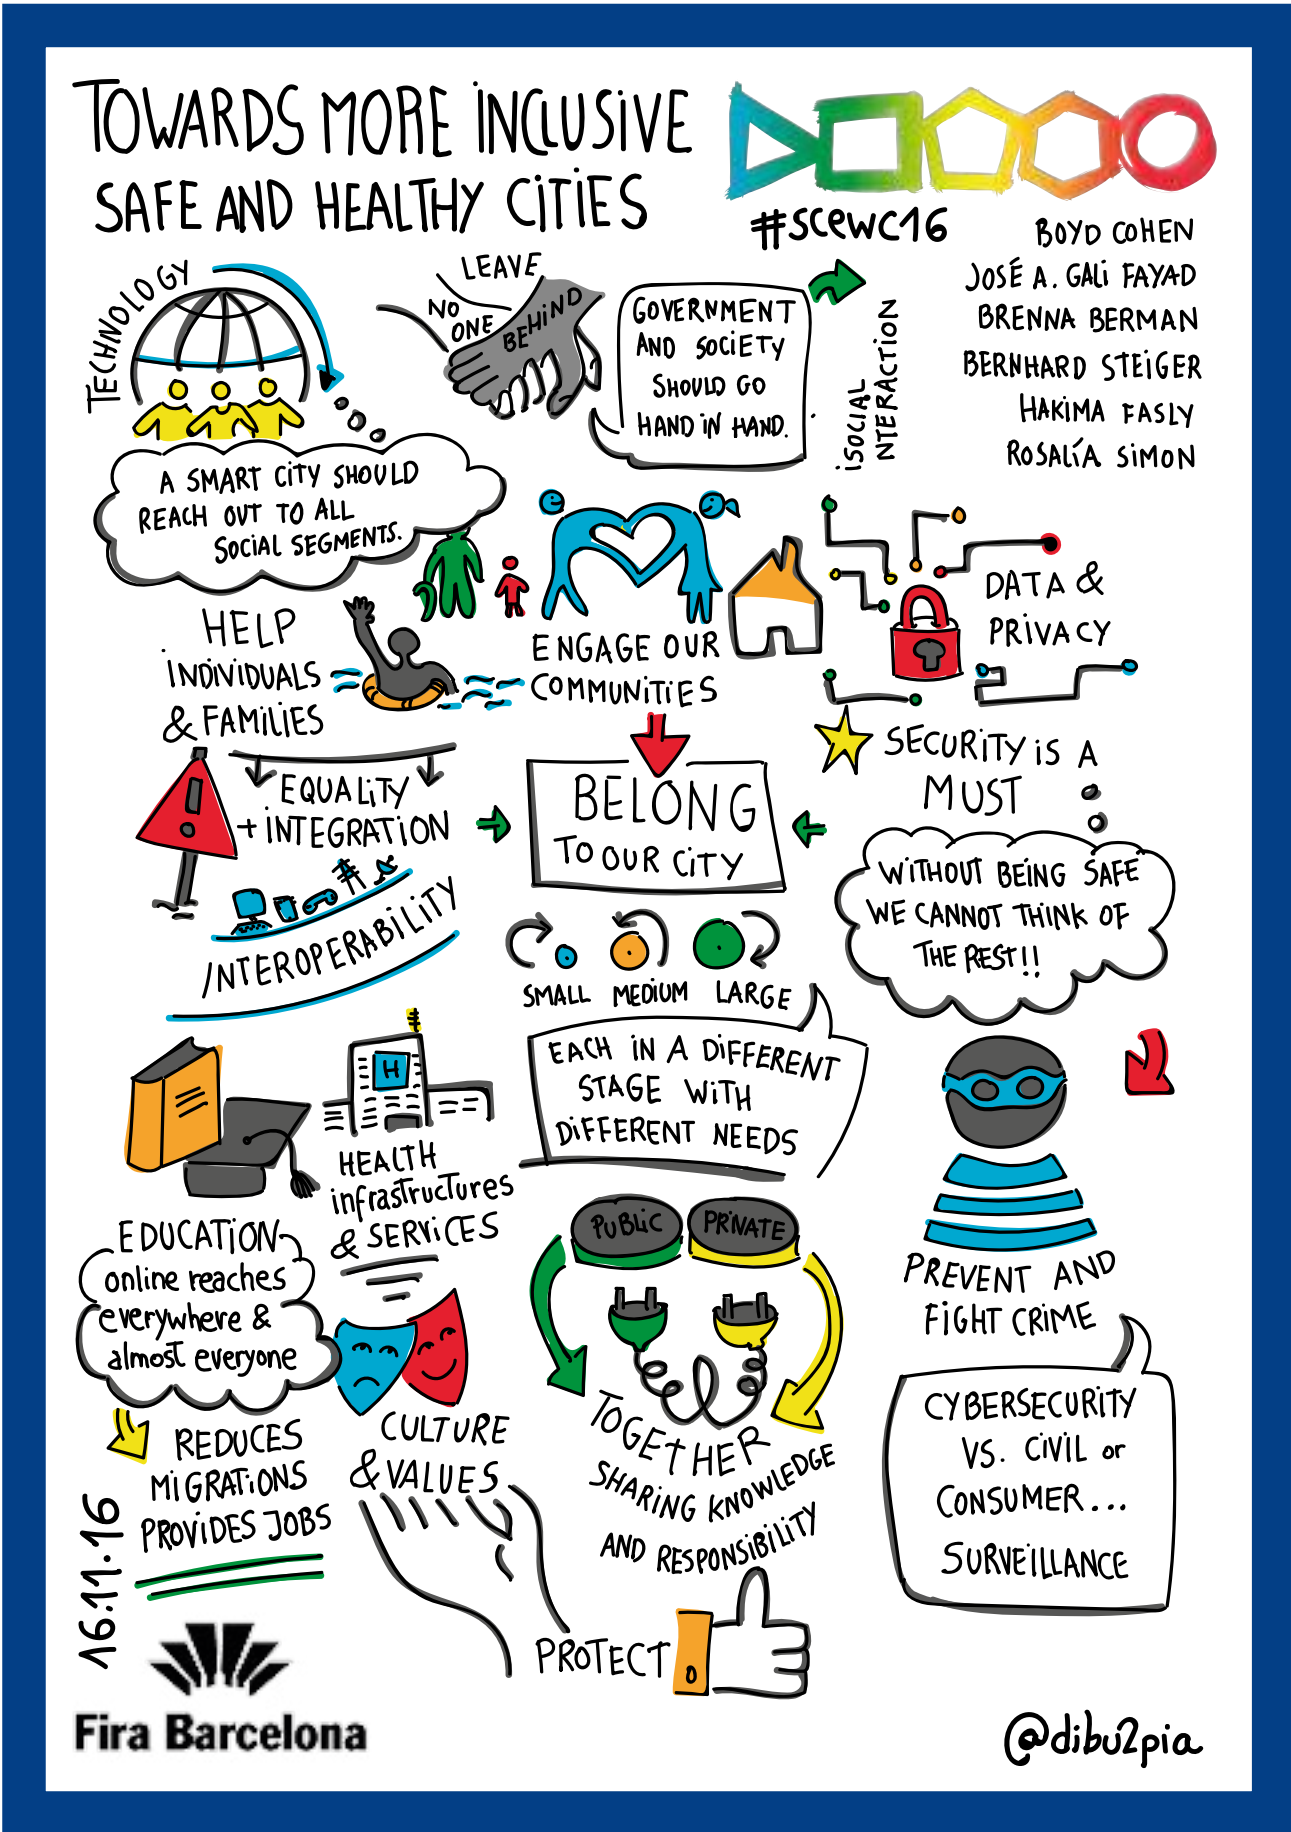 TOWARDS MORE INCLUSIVE
SAFE AND HEALTHY CITIES
#scewc16
BOYD COHEN
JOSÉ A. GALI FAYAD
BRENNA BERMAN
BERNHARD STEIGER
HAKIMA FASLY
ROSALÍA SIMON
TECHNOLOGY
LEAVE
NO
ONE
BEHIND
GOVERNMENT
AND SOCIETY
SHOULD GO
HAND IN HAND.
iSOCIAL
NTERACTION
A SMART CITY SHOULD
REACH OUT TO ALL
SOCIAL SEGMENTS.
HELP
INDIVIDUALS
& FAMILIES
ENGAGE OUR
COMMUNITIES
DATA &
PRIVACY
SECURITY IS A
MUST
EQUALITY
+ INTEGRATION
BELONG
TO OUR CITY
WITHOUT BEING SAFE
WE CANNOT THINK OF
THE REST!!
INTEROPERABILITY
SMALL MEDIUM LARGE
EACH IN A DIFFERENT
STAGE WITH
DIFFERENT NEEDS
H
HEALTH
infrastructures
& SERVICES
EDUCATION
online reaches
everywhere &
almost everyone
PUBLIC PRIVATE
PREVENT AND
FIGHT CRIME
REDUCES
MIGRATIONS
PROVIDES JOBS
CULTURE
& VALUES
TOGETHER
SHARING KNOWLEDGE
AND RESPONSIBILITY
CYBERSECURITY
VS. CIVIL or
CONSUMER...
SURVEILLANCE
PROTECT
16.11.16
Fira Barcelona
@dibu2pia